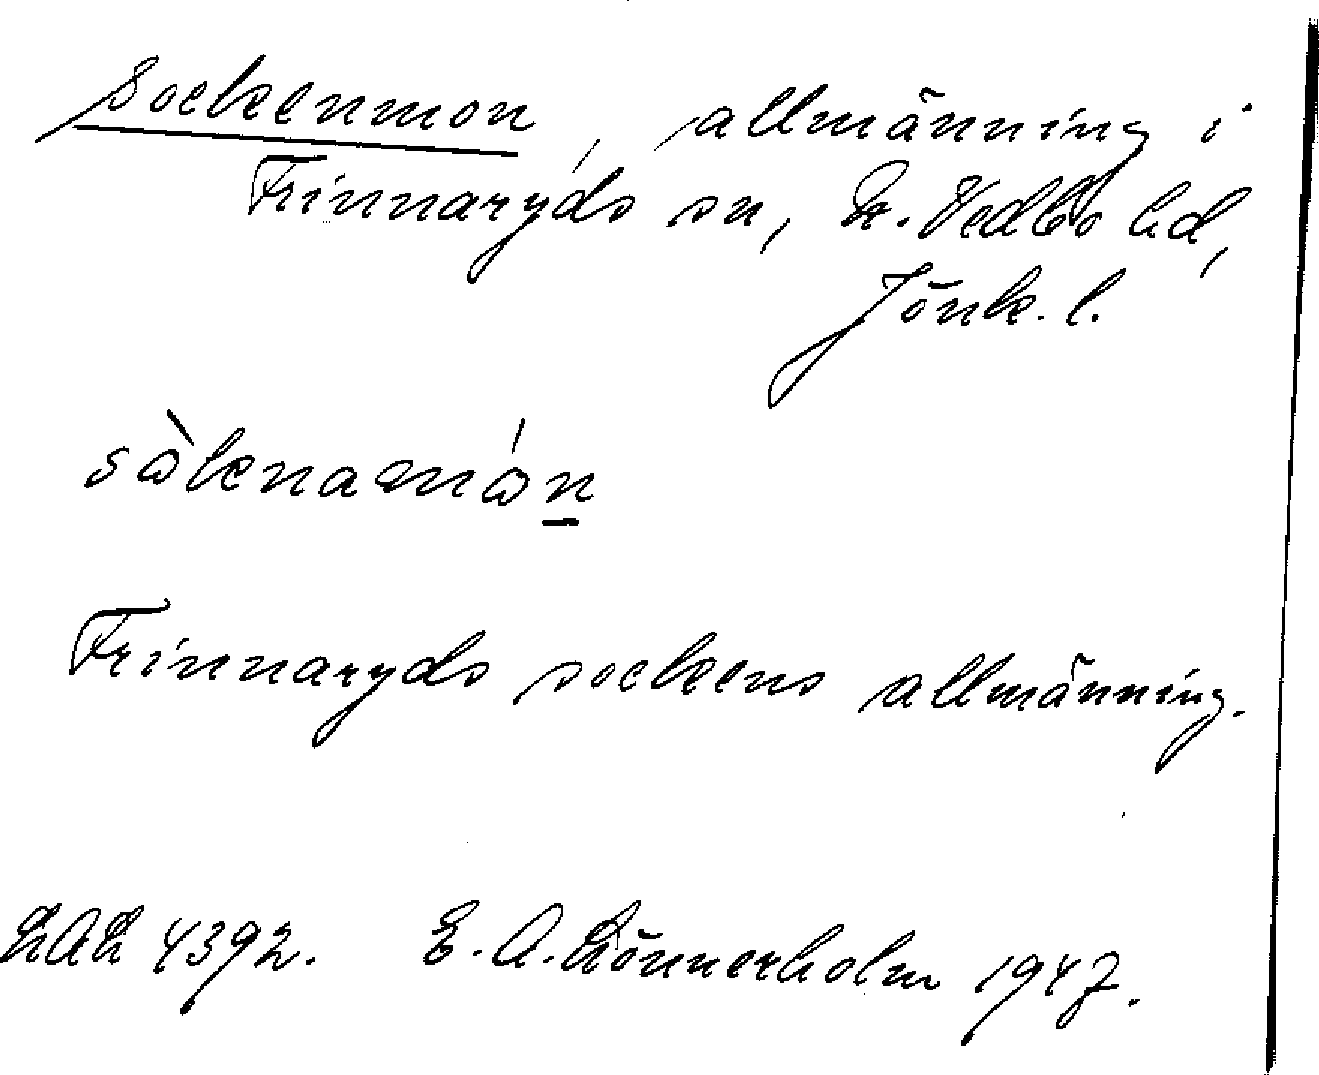 Sockenmon, allmänning i
Frinnaryds sn, N. Vedbo hd,
Jönk. l.
Frinnaryds sockens allmänning.
4392. E. A. Lönnerholm 1947.